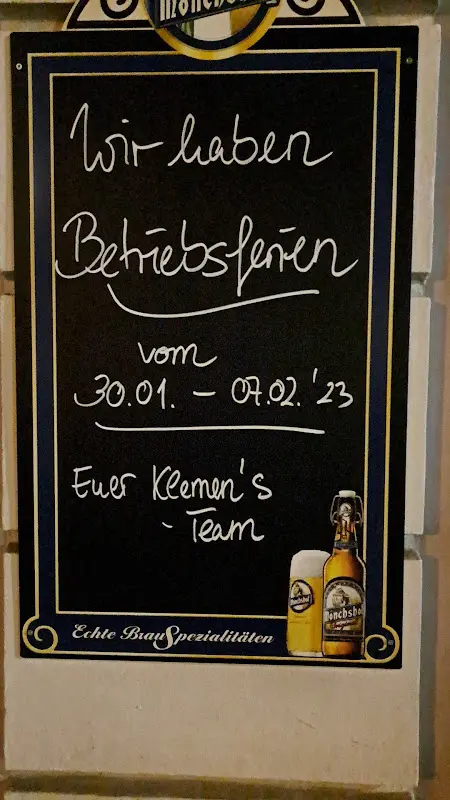 Mönchshof
Wir haben
Betriebsferien
vom
30.01. - 07.02.'23
Euer Klemen's
- Team
Echte BrauSpezialitäten
Mönchshof
Mönchshof